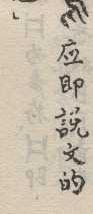 应即説文的